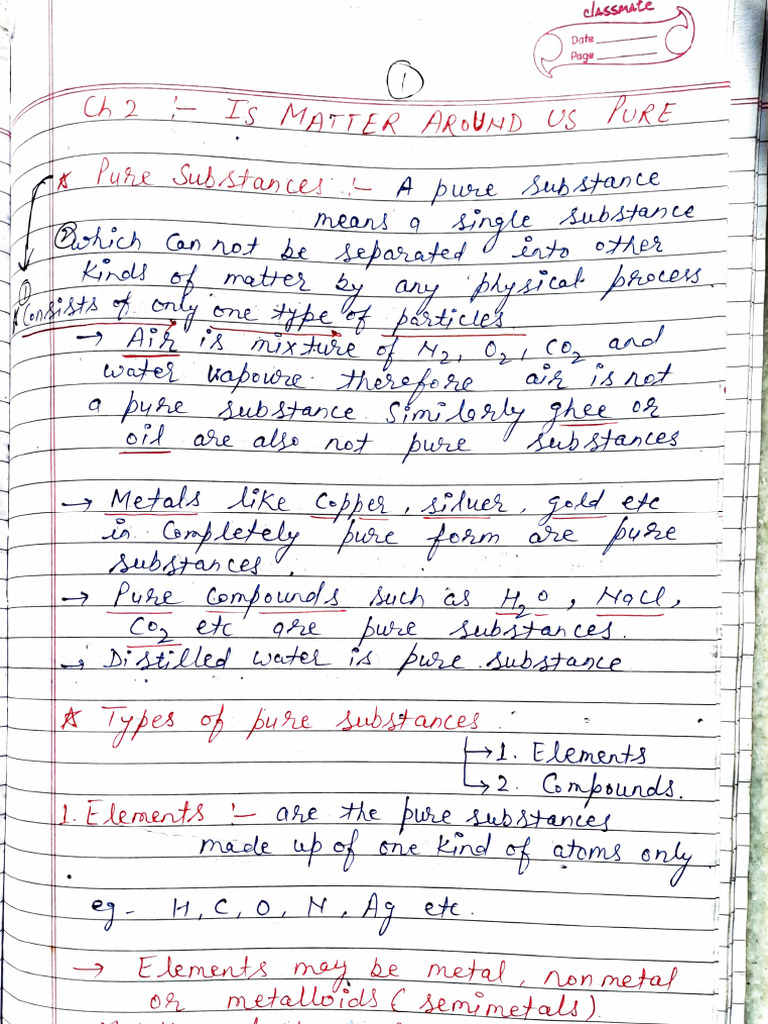 classmate
Date
Page
1
Ch 2 :- IS MATTER AROUND US PURE
* Pure Substances :- A pure substance
means a single substance
② which can not be separated into other
kinds of matter by any physical process.
①
* Consists of only one type of particles.
→ Air is mixture of N2, O2, CO2 and
water vapoure. therefore air is not
a pure substance. Similerly ghee or
oil are also not pure substances
→ Metals like copper, silver, gold etc
in completely pure form are pure
substances.
→ Pure compounds such as H2O, NaCl,
CO2 etc are pure substances.
→ Distilled water is pure substance
* Types of pure substances.
→ 1. Elements
→ 2. Compounds.
1. Elements :- are the pure substances
made up of one kind of atoms only
eg - H, C, O, N, Ag etc.
→ Elements may be metal, nonmetal
or metalloids (semimetals).